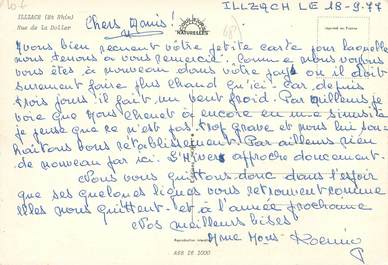 ILLZACH LE 18-9-77
ILLZACH (Ht Rhin)
Rue de la Doller
Imprimé en France
NATURELLES
Chers Amis!
Avons bien reçu votre petite carte pour laquelle
nous tenons à vous remercier. Comme nous voyons
vous êtes à nouveau dans votre pays où il doit
surement faire plus chaud qu'ici car depuis
trois jours il fait un vent froid. Par ailleurs je
vois que Mons Chenet à encore eu une sinusite
je pense que ce n'est pas trop grave et nous lui sou-
haitons bon rétablissement. Par ailleurs rien
de nouveau par ici. L'Hiver approche doucement.
Nous vous quittons donc dans l'espoir
que ses quelques lignes vous retrouvent comme
elles nous quittent et à l'année prochaine
Nos meilleurs bises
Mme Mons
Reproduction interdite